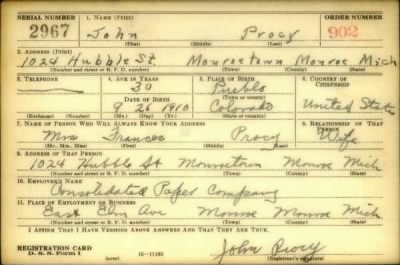 SERIAL NUMBER 1. NAME (Print) ORDER NUMBER
2967 John Procy 902
(First) (Middle) (Last)
2. ADDRESS (Print)
1024 Hubble St. Monroetown Monroe Mich
(Number and street or R. F. D. number) (Town) (County) (State)
3. TELEPHONE 4. AGE IN YEARS 5. PLACE OF BIRTH 6. COUNTRY OF CITIZENSHIP
30 Pueblo
DATE OF BIRTH (Town or county)
9 26 1910 Colorado United States
(Exchange) (Number) (Mo.) (Day) (Yr.) (State or country)
7. NAME OF PERSON WHO WILL ALWAYS KNOW YOUR ADDRESS 8. RELATIONSHIP OF THAT PERSON
Mrs Frances Procy Wife
(Mr., Mrs., Miss) (First) (Middle) (Last)
9. ADDRESS OF THAT PERSON
1024 Hubble St Monroe Mich
(Number and street or R. F. D. number) (Town) (County) (State)
10. EMPLOYER'S NAME
Consolidated Paper Company
11. PLACE OF EMPLOYMENT OR BUSINESS
East Elm Ave Monroe Monroe Mich.
(Number and street or R. F. D. number) (Town) (County) (State)
I AFFIRM THAT I HAVE VERIFIED ABOVE ANSWERS AND THAT THEY ARE TRUE.
REGISTRATION CARD
D. S. S. Form 1 (over) John Procy
(Registrant's signature)